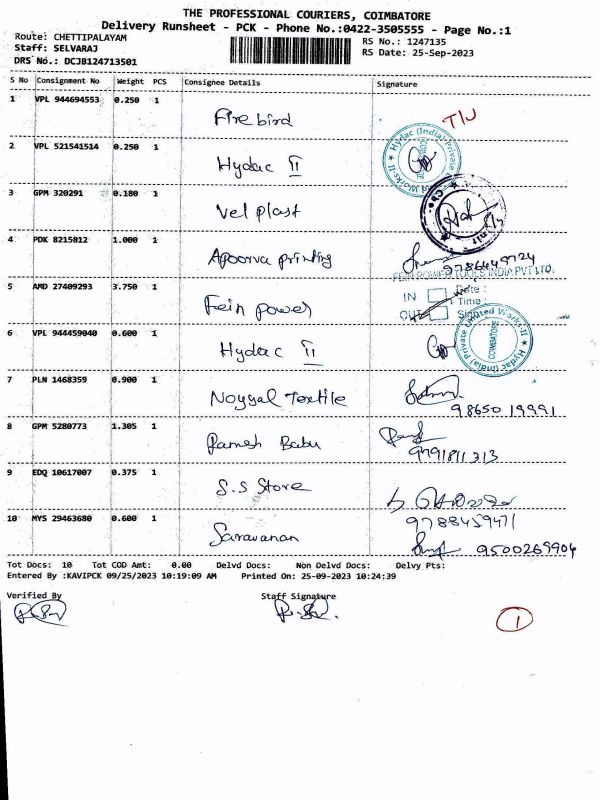 THE PROFESSIONAL COURIERS, COIMBATORE
Delivery Runsheet - PCK - Phone No.:0422-3505555 - Page No.:1
Route: CHETTIPALAYAM
RS No.: 1247135
Staff: SELVARAJ
RS Date: 25-Sep-2023
DRS No.: DCJB124713501
S No Consignment No Weight PCS Consignee Details Signature
1 VPL 944694553 0.250 1 Fire bird T/U
2 VPL 521541514 0.250 1 Hydac II
Hydac (India) Private
COIMBATORE
3 GPM 320291 0.180 1 Vel plast
4 PDK 8215812 1.000 1 Apoorva printing
FEIN POWER TOOLS INDIA PVT LTD.
5 AMD 27409293 3.750 1 Fein power
IN Date :
Time :
OUT
6 VPL 944459040 0.600 1 Hydac II
Hydac (India) Private Limited Works-II
COIMBATORE
7 PLN 1468359 0.900 1 Noyyal Textile
98650 19991
8 GPM 5280773 1.305 1 Ramesh Babu
9791811313
9 EDQ 10617007 0.375 1 S.S Store
9788459471
10 MYS 29463680 0.600 1 Saravanan
9500269904
Tot Docs: 10 Tot COD Amt: 0.00 Delvd Docs: Non Delvd Docs: Delvy Pts:
Entered By :KAVIPCK 09/25/2023 10:19:09 AM Printed On: 25-09-2023 10:24:39
Verified By Staff Signature
1